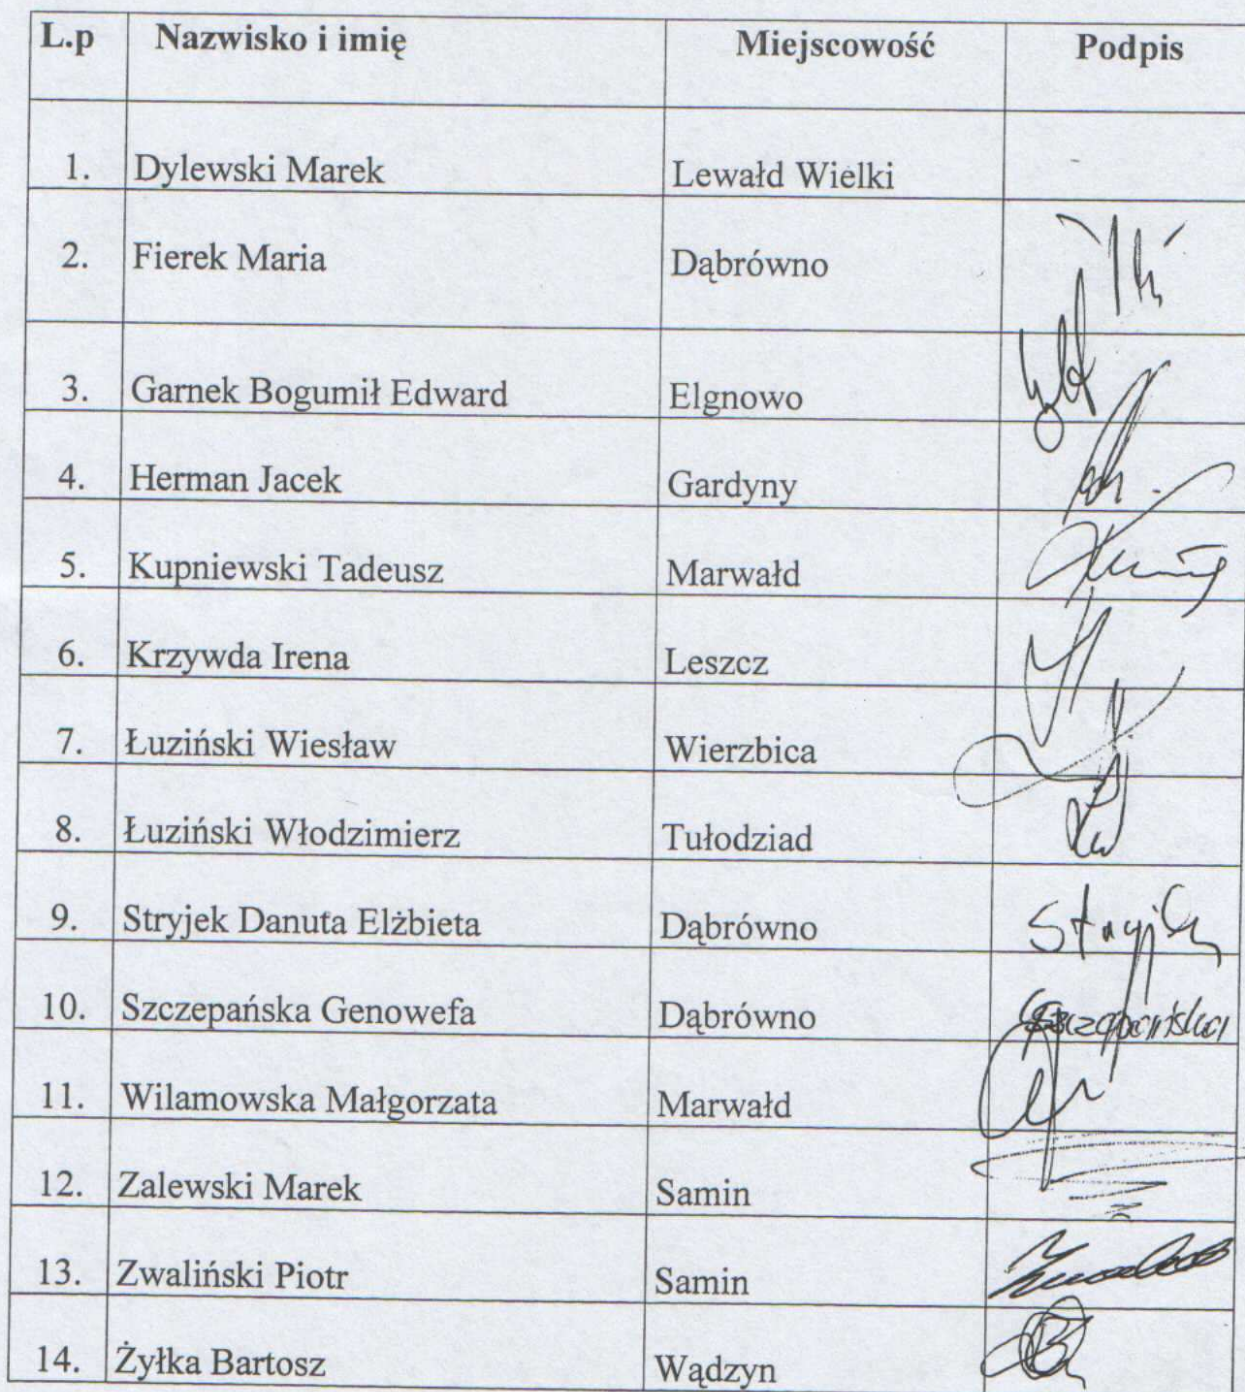 L.p Nazwisko i imię Miejscowość Podpis
1. Dylewski Marek Lewałd Wielki
2. Fierek Maria Dąbrówno
3. Garnek Bogumił Edward Elgnowo
4. Herman Jacek Gardyny
5. Kupniewski Tadeusz Marwałd
6. Krzywda Irena Leszcz
7. Łuziński Wiesław Wierzbica
8. Łuziński Włodzimierz Tułodziad
9. Stryjek Danuta Elżbieta Dąbrówno
10. Szczepańska Genowefa Dąbrówno
11. Wilamowska Małgorzata Marwałd
12. Zalewski Marek Samin
13. Zwaliński Piotr Samin
14. Żyłka Bartosz Wądzyn